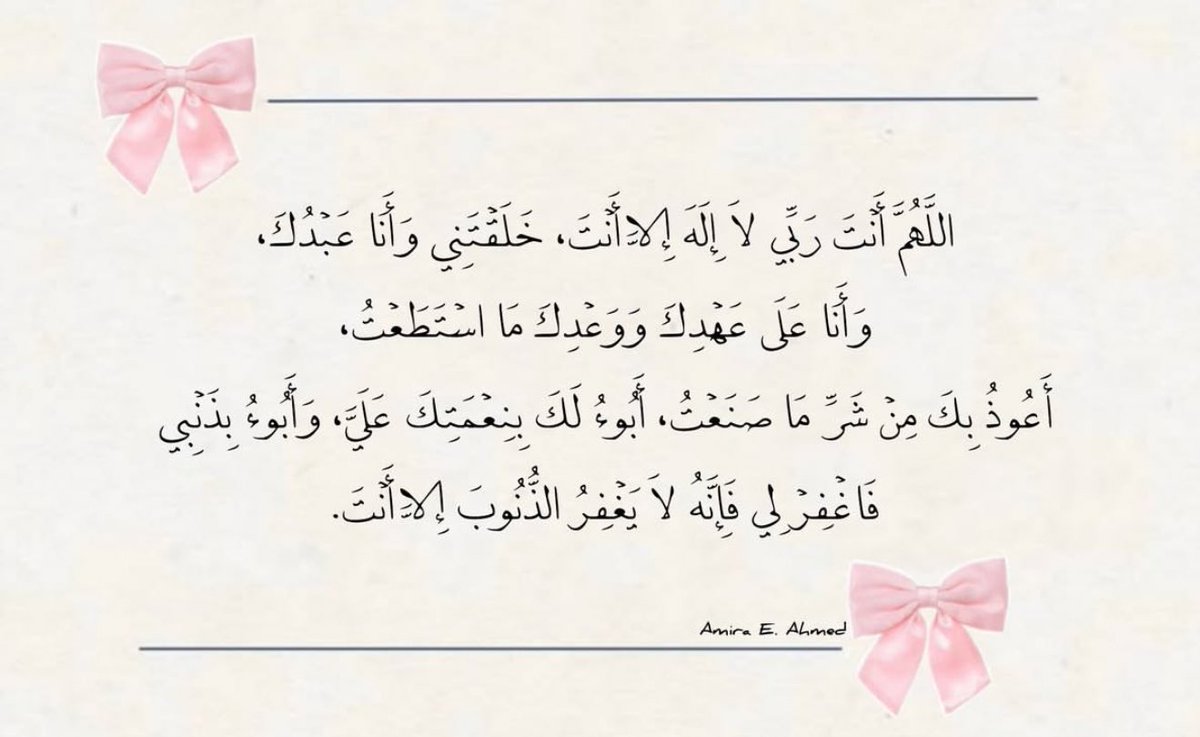 اللَّهُمَّ أَنْتَ رَبِّي لاَ إِلَهَ إِلاَّ أَنْتَ، خَلَقْتَنِي وَأَنَا عَبْدُكَ،
وَأَنَا عَلَى عَهْدِكَ وَوَعْدِكَ مَا اسْتَطَعْتُ،
أَعُوذُ بِكَ مِنْ شَرِّ مَا صَنَعْتُ، أَبُوءُ لَكَ بِنِعْمَتِكَ عَلَيَّ، وَأَبُوءُ بِذَنْبِي
فَاغْفِرْ لِي فَإِنَّهُ لاَ يَغْفِرُ الذُّنُوبَ إِلاَّ أَنْتَ.
Amira E. Ahmed